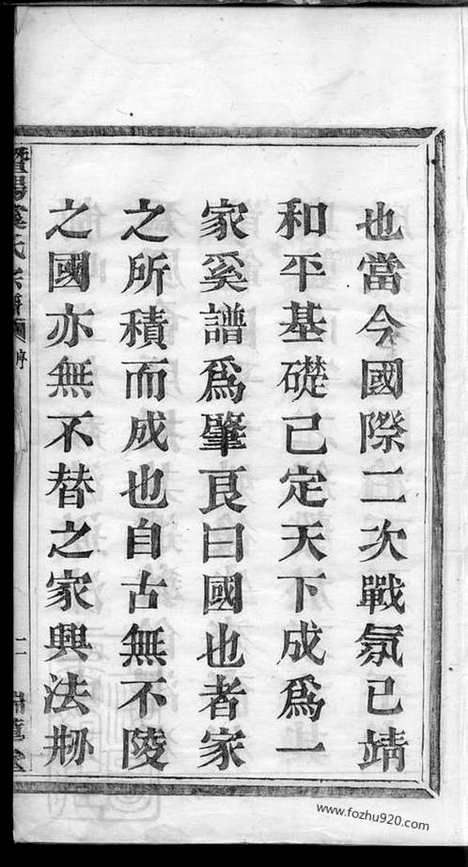 也當今國際二次戰氛已靖
和平基礎已定天下成爲一
家奚譜爲肇良曰國也者家
之所積而成也自古無不陵
之國亦無不替之家興法刱
氏宗譜
二
www.fozhu920.com